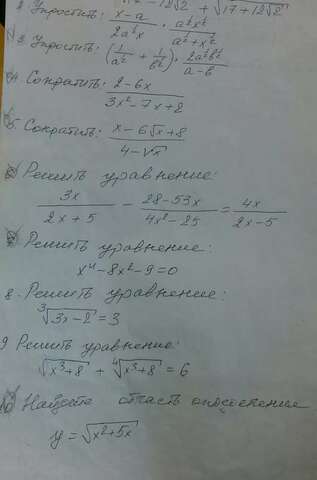 17 - 12√2 + √(17 + 12√2)
2 Упростить: (x - a)/(2a^(1/2)x) · (a^(1/2)x^(1/2))/(a^(1/2) + x^(1/2))
3 Упростить: (1/a^(1/2) + 1/b^(1/2)) · (2a^(1/2)b^(1/2))/(a - b)
4. Сократить: (2 - 6x)/(3x² - 7x + 2)
5. Сократить: (x - 6√x + 8)/(4 - √x)
6 Решить уравнение:
3x/(2x + 5) - (28 - 53x)/(4x² - 25) = 4x/(2x - 5)
7 Решить уравнение:
x⁴ - 8x² - 9 = 0
8. Решить уравнение:
∛(3x - 2) = 3
9 Решить уравнение:
√(x³ + 8) + ∜(x³ + 8) = 6
10 Найдите область
y = √(x² + 5x)